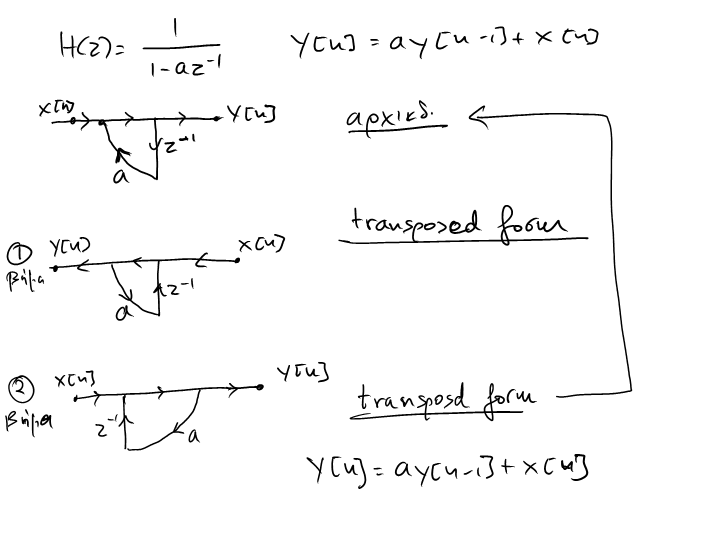 H(z) = 1 / (1 - az⁻¹) y[n] = ay[n-1] + x[n]
x[n] y[n] αρχικό.
z⁻¹
a
transposed form
① y[n] x[n]
βήμα
a z⁻¹
② x[n] y[n]
βήμα transposd form
z⁻¹ a
y[n] = ay[n-1] + x[n]